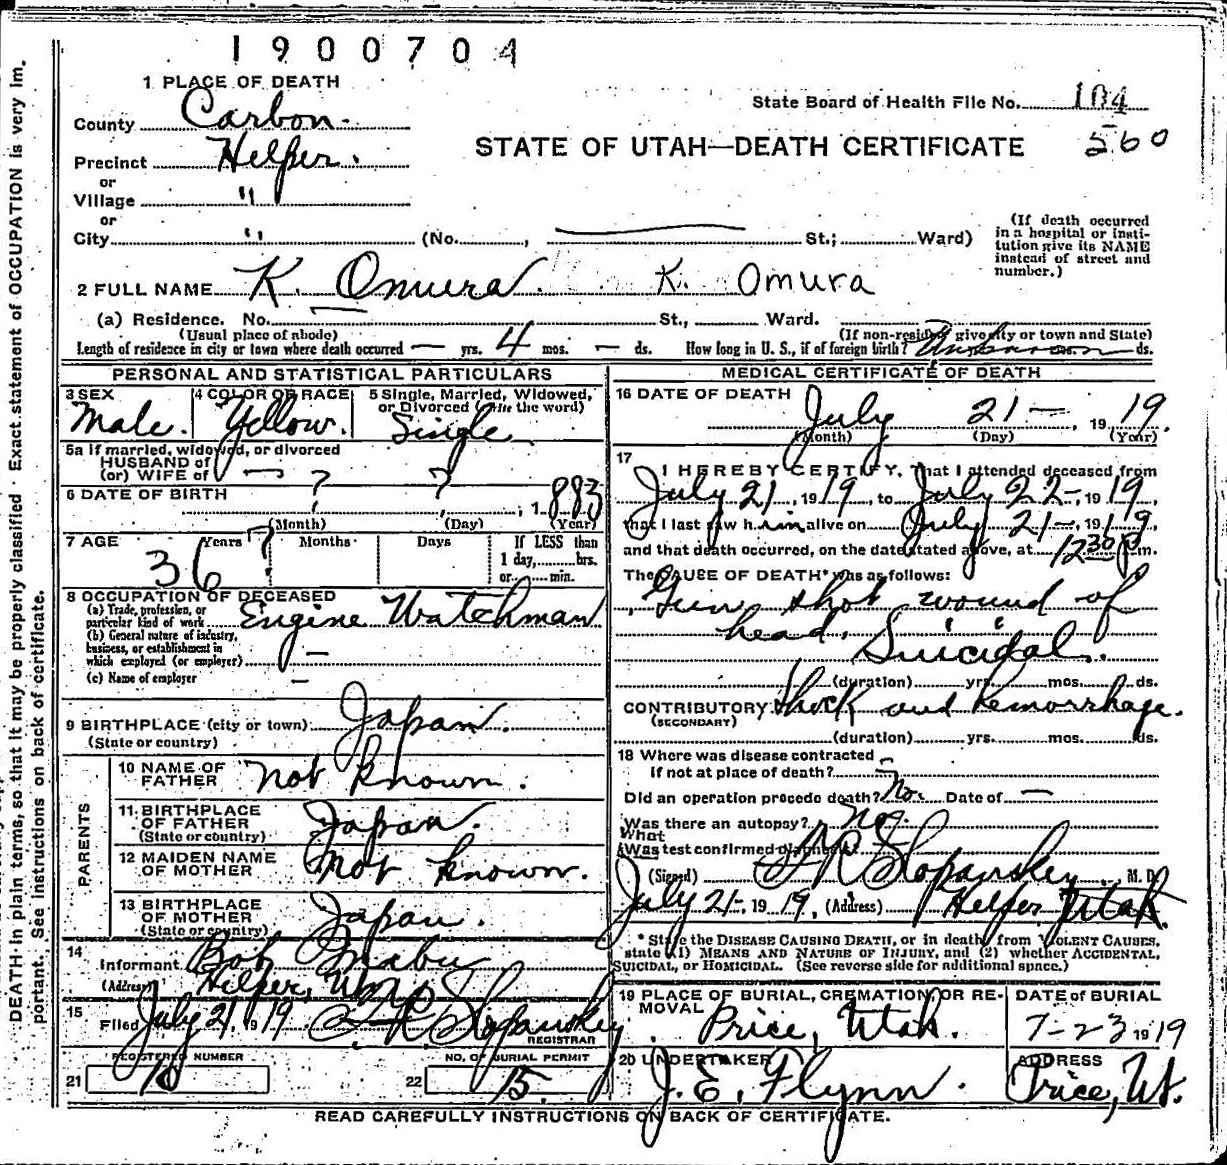 1900704
1 PLACE OF DEATH
State Board of Health File No. 104
County Carbon.
STATE OF UTAH—DEATH CERTIFICATE 560
Precinct Helper.
or
Village "
or
City " (No. , St.; Ward)
(If death occurred in a hospital or insti-
tution give its NAME
instead of street and
number.)
2 FULL NAME K. Omura. K. Omura
(a) Residence. No. St., Ward.
(Usual place of abode) (If non-resident give city or town and State)
Length of residence in city or town where death occurred — yrs. 4 mos. — ds. How long in U. S., if of foreign birth? Unknown ds.
PERSONAL AND STATISTICAL PARTICULARS
3 SEX Male.
4 COLOR OR RACE Yellow.
5 Single, Married, Widowed,
or Divorced (write the word)
Single
5a If married, widowed, or divorced
HUSBAND of
(or) WIFE of —
6 DATE OF BIRTH ? ? , 1883
(Month) (Day) (Year)
7 AGE 36 Years ? Months Days If LESS than
1 day, hrs.
or min.
8 OCCUPATION OF DECEASED
(a) Trade, profession, or
particular kind of work Engine Watchman
(b) General nature of industry,
business, or establishment in
which employed (or employer) —
(c) Name of employer —
9 BIRTHPLACE (city or town) Japan.
(State or country)
PARENTS
10 NAME OF
FATHER not known.
11 BIRTHPLACE
OF FATHER Japan.
(State or country)
12 MAIDEN NAME
OF MOTHER not known.
13 BIRTHPLACE
OF MOTHER Japan.
(State or country)
14
Informant Bob
(Address) Helper, Utah
15
Filed July 21, 1919 Slopanskey
REGISTRAR
REGISTERED NUMBER
21
NO. OF BURIAL PERMIT
22 15.
MEDICAL CERTIFICATE OF DEATH
16 DATE OF DEATH July 21— , 1919.
(Month) (Day) (Year)
17
I HEREBY CERTIFY, That I attended deceased from
July 21, 1919, to July 22—, 1919,
that I last saw him alive on July 21—, 1919,
and that death occurred, on the date stated above, at 12 30 P m.
The CAUSE OF DEATH* was as follows:
Gun shot wound of
head. Suicidal.
(duration) yrs. mos. ds.
CONTRIBUTORY Shock and hemorrhage.
(SECONDARY)
(duration) yrs. mos. ds.
18 Where was disease contracted
if not at place of death? —
Did an operation precede death? No. Date of —
Was there an autopsy? No.
What
Was test confirmed diagnosis?
(Signed) Slopanskey, M. D.
July 21-, 1919, (Address) Helper Utah.
* State the DISEASE CAUSING DEATH, or in death from VIOLENT CAUSES,
state (1) MEANS AND NATURE OF INJURY, and (2) whether ACCIDENTAL,
SUICIDAL, or HOMICIDAL. (See reverse side for additional space.)
19 PLACE OF BURIAL, CREMATION, OR RE-
MOVAL Price, Utah.
DATE of BURIAL
7-23 1919
20 UNDERTAKER
J. E. Flynn.
ADDRESS
Price, Ut.
READ CAREFULLY INSTRUCTIONS ON BACK OF CERTIFICATE.
DEATH in plain terms, so that it may be properly classified. Exact statement of OCCUPATION is very im-
portant. See instructions on back of certificate.